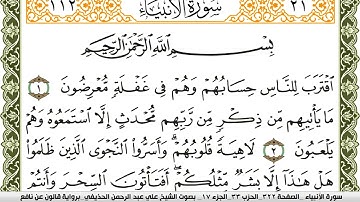 ٢١ سُورَةُ الأَنبِيَاءِ ١١٢
بِسْمِ اللَّهِ الرَّحْمَٰنِ الرَّحِيمِ
اقْتَرَبَ لِلنَّاسِ حِسَابُهُمْ وَهُمْ فِي غَفْلَةٍ مُّعْرِضُونَ ١
مَا يَأْتِيهِم مِّن ذِكْرٍ مِّن رَّبِّهِم مُّحْدَثٍ إِلَّا اسْتَمَعُوهُ وَهُمْ
يَلْعَبُونَ ٢ لَاهِيَةً قُلُوبُهُمْ وَأَسَرُّوا النَّجْوَى الَّذِينَ ظَلَمُوا
هَلْ هَٰذَا إِلَّا بَشَرٌ مِّثْلُكُمْ أَفَتَأْتُونَ السِّحْرَ وَأَنتُمْ
سورة الأنبياء_ الصفحة ٣٢٢_ الحزب ٣٣_ الجزء ١٧_ بصوت الشيخ علي عبد الرحمن الحذيفي_ برواية قالون عن نافع